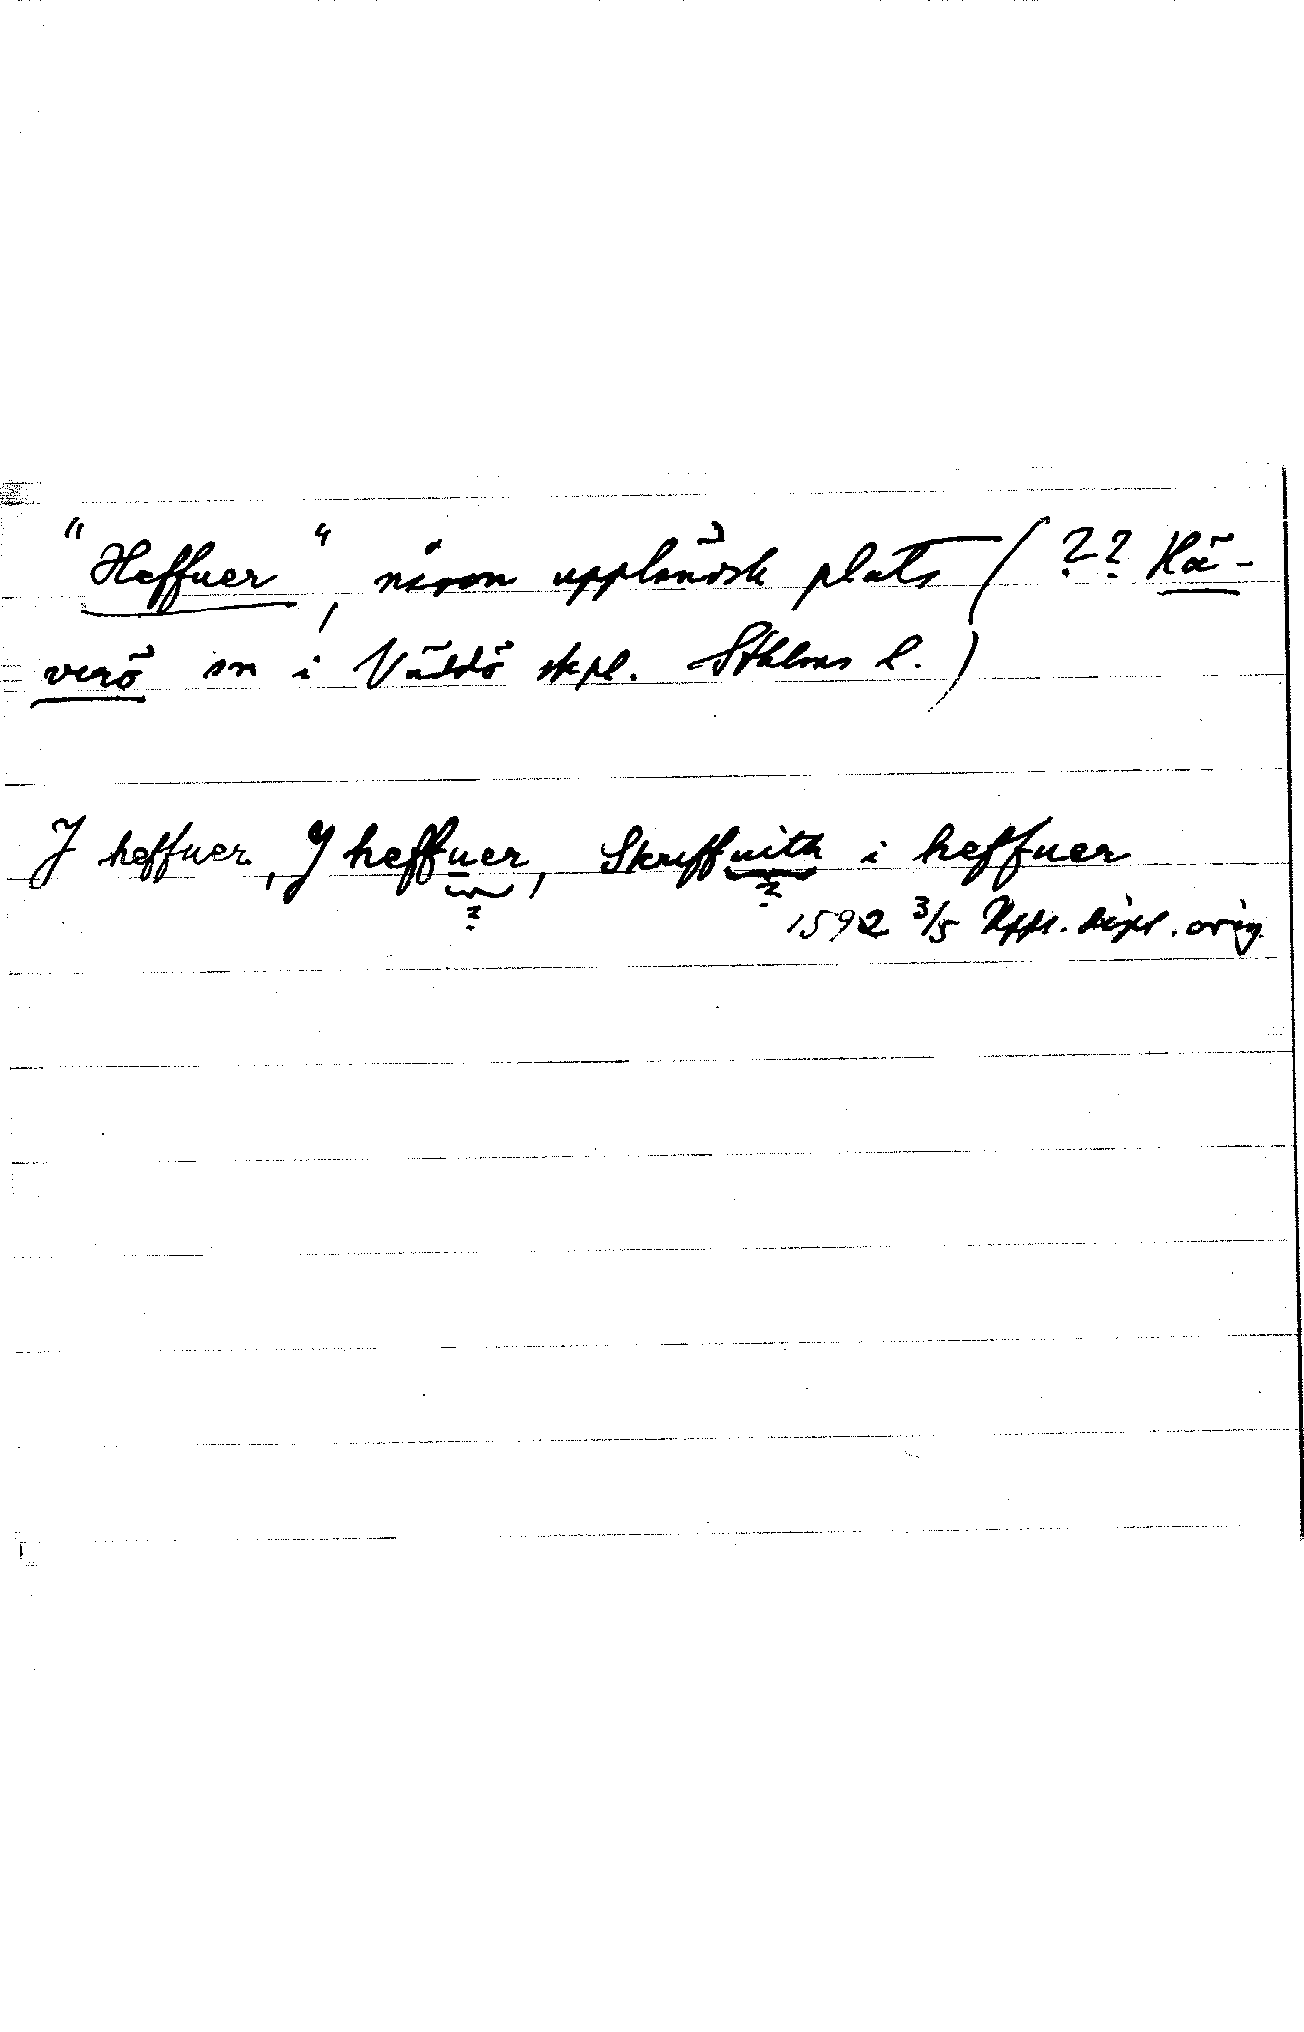 "Heffner", någon uppländsk plats (?? Hä-
verö sn i Väddö skpl. Sthlms l.)
J heffner, J heffner, Skruffnith i heffner
? ?
1592 3/5 Uppl. dipl. orig.